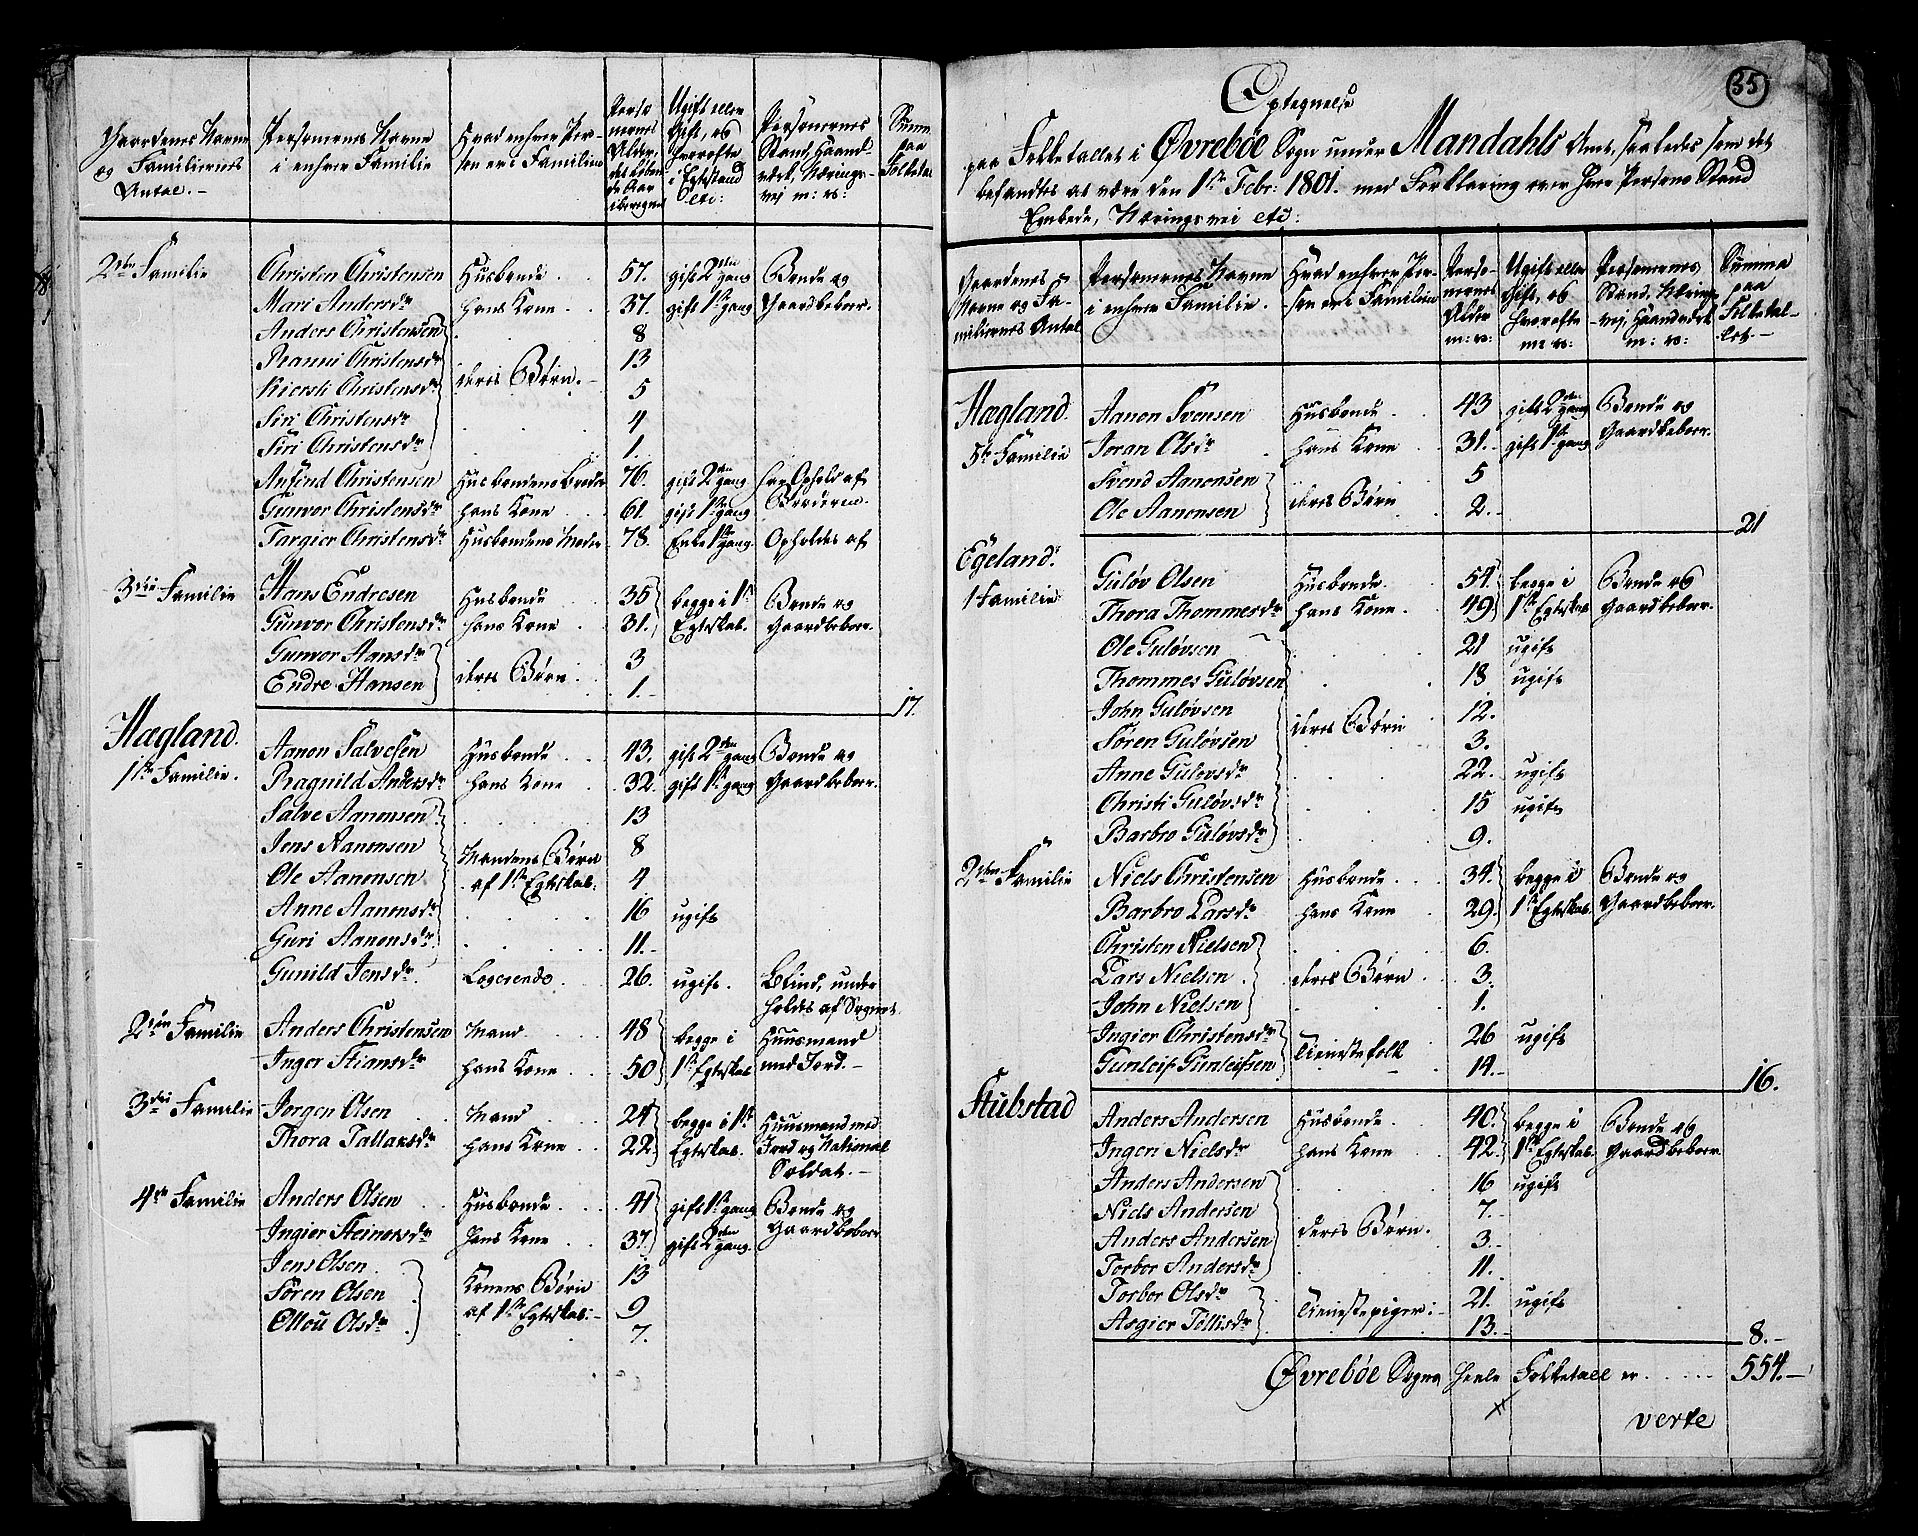 Gaardenes Navne og Familiernes Antal.-
Personernes Navne i enhver Familie
Hvad enhver Person er i Familien
Personernes Alder, det løbende Aar iberegnet
Ugift eller Gift, og hvorofte i Egtestand etc:
Personernes Stand, Haandverk, Næringsvej m: v:
Summa paa Folketal
2den Familie
Christen Christensen Husbonde 57. gift 2den gang Bonde og
Mari Andersdr hans Kone 37. gift 1ste gang Gaardbeboer.
Anders Christensen 8
Ranni Christensdr 13
Kiersti Christensdr deris Børn. 5
Siri Christensdr 4
Siri Christensdr 1.
Anfind Christensen Husbondens Broder 76. gift 2den gang har Ophold af
Gunvor Christensdr hans Kone 61. gift 1ste gang Broderen.
Targier Christensdr Husbondens Moder 78. Enke 1ste gang Opholdes af
3die Familie
Hans Endresen Husbonde 35 begge i 1ste Bonde og
Gunvor Christensdr hans Kone 31. Egteskab. Gaardbeboer.
Gunvor Hansdr deres Børn 3
Endre Hansen 1.-
17.
Hægland.
1ste Familie.
Aanon Salvesen Husbonde 43. gift 2den gang Bonde og
Ragnild Andersdr hans Kone 32. gift 1ste gang Gaardbeboer.
Salve Aanonsen 13
Jens Aanonsen Mandens Børn 8
Ole Aanonsen af 1ste Egteskab. 4
Anne Aanonsdr 16 ugift
Guri Aanonsdr 11.-
Gunild Jensdr Logerende 26. ugift. Blind, under
holdes af Sognet.
2den Familie
Anders Christensen Mand 48 begge i Huusmand
Inger Stiansdr hans Kone 50 1ste Egteskab med Jord.-
3die Familie
Jørgen Olsen Mand 24 begge i 1ste Huusmand med
Thora Tallaksdr hans Kone 22 Egteskab. Jord og National
Soldat.-
4de Familie
Anders Olsen Husbonde 41 gift 1ste gang Bonde og
Ingier Steinersdr hans Kone 37 gift 2den gang. Gaardbeboer
Jens Olsen 13
Søren Olsen Konens Børn 9
Ellou Olsdr af 1ste Egteskab:- 7.
35
Optegnelse
paa Folketallet i Øvrebøe Sogn under Mandahls Amt, saaledes som det
befandtes at være den 1ste Febr: 1801. med Forklaring over hver Persons Stand
Embede, Næringsvei etc:
Gaardenes Navne og Familiernes Antal
Personernes Navne i enhver Familie.
Hvad enhver Person er i Familien
Personernes Alder m: v:
Ugift eller Gift, og hvorofte m: v:
Personernes Stand, Næringsvej, Haandverk m: v:
Summa paa Folketallet.-
Hægland.
5te Familie
Aanon Svensen Husbonde 43 gift 2den gang Bonde og
Joran Olsdr hans Kone 31. gift 1ste gang Gaardbeboer.
Svend Aanonsen deres Børn 5
Ole Aanonsen 2.-
21
Egeland.
1 Familie
Guløv Olsen Husbonde. 54 begge i Bonde og
Thora Thommesdr hans Kone 49 1ste Egteskab Gaardbeboer.
Ole Guløvsen 21 ugift
Thommes Guløvsen 18 ugift
John Guløvsen deres Børn 12.
Søren Guløvsen 3.
Anne Guløvsdr 22. ugift
Christi Guløvsdr 15 ugift
Barbro Guløvsdr 9.
2den Familie
Niels Christensen Husbonde 34. begge i Bonde og
Barbro Larsdr hans Kone 29. 1ste Egteskab. Gaardbeboer.
Christen Nielsen 6.
Lars Nielsen deres Børn 3.
John Nielsen 1.
Ingier Christensdr Tienestefolk 26 ugift
Gunleif Gunleifsen 14.-
16.
Stubstad
Anders Andersen Husbonde 40. begge i Bonde og
Ingeri Nielsdr hans Kone 42. 1ste Egteskab. Gaardbeboer
Anders Andersen 16 ugift
Niels Andersen 7.
Anders Andersen deres Børn. 3.-
Torbor Andersdr 11.
Torbor Olsdr Tienestepiger:- 21. ugift
Asgier Tollisdr 13.
8.-
Øvrebøe Sogns heele Folketall er 554.-
verte